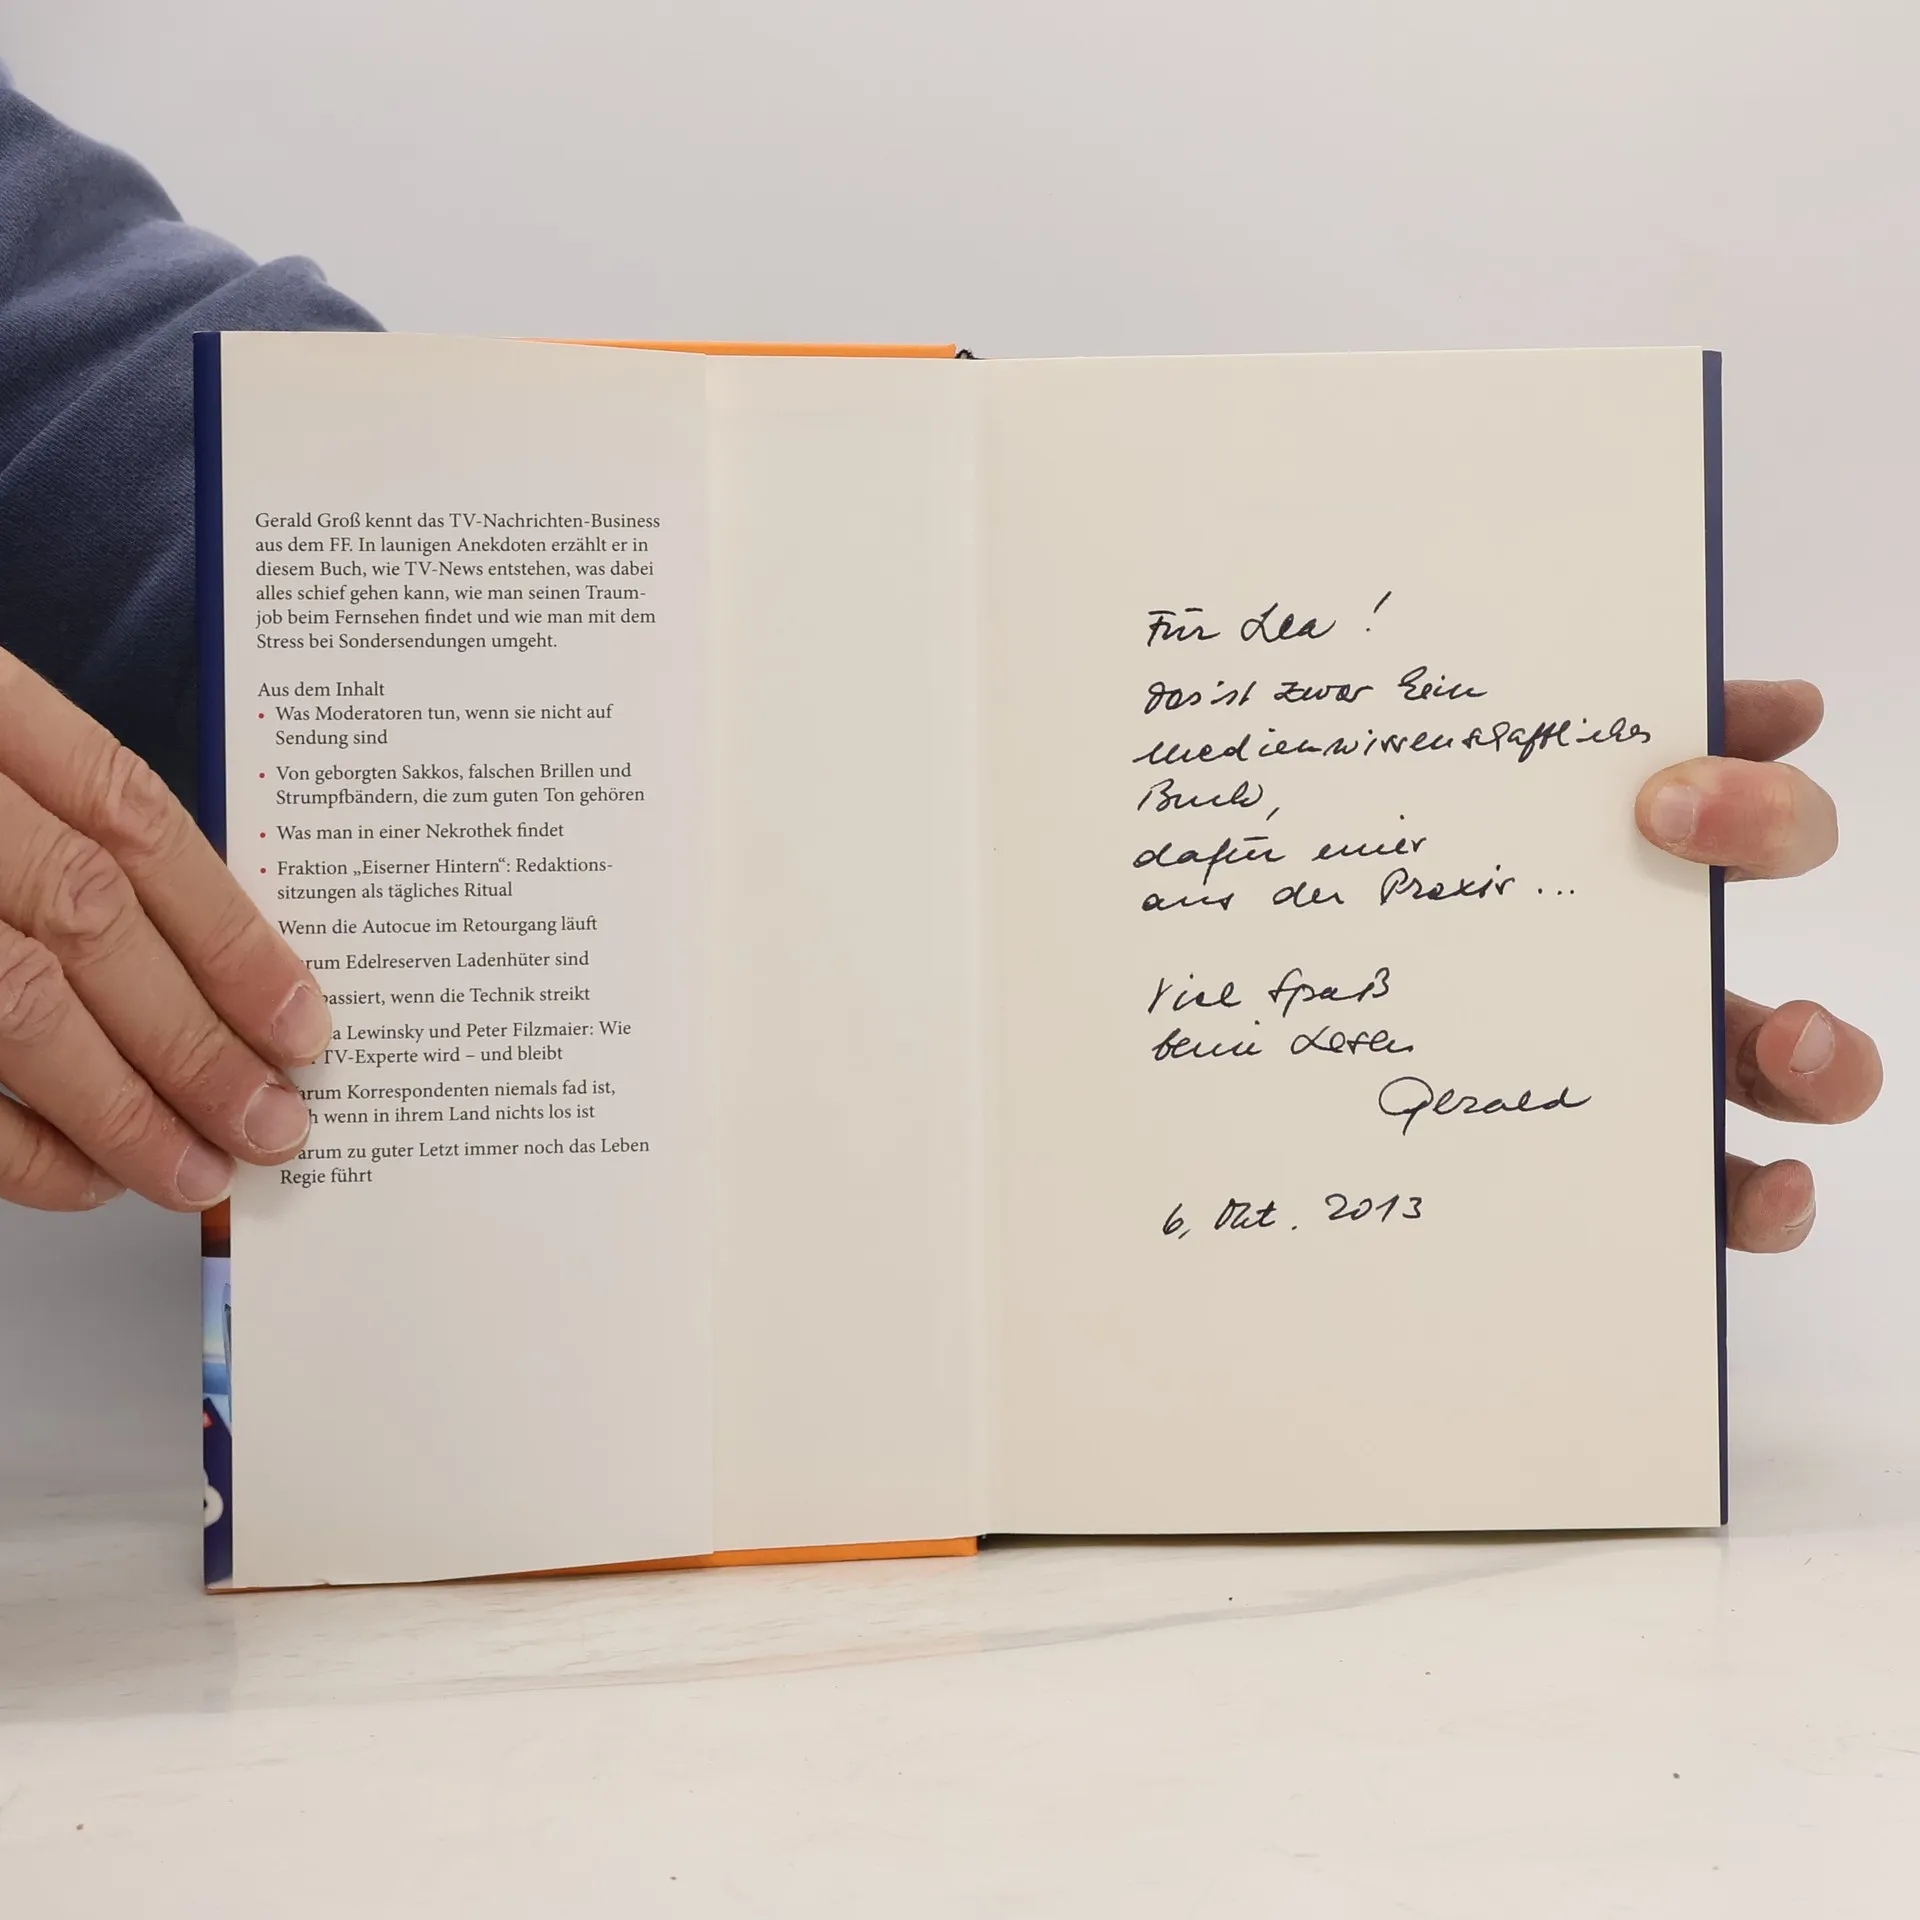 Gerald Groß kennt das TV-Nachrichten-Business
aus dem FF. In launigen Anekdoten erzählt er in
diesem Buch, wie TV-News entstehen, was dabei
alles schief gehen kann, wie man seinen Traum-
job beim Fernsehen findet und wie man mit dem
Stress bei Sondersendungen umgeht.
Aus dem Inhalt
• Was Moderatoren tun, wenn sie nicht auf
Sendung sind
• Von geborgten Sakkos, falschen Brillen und
Strumpfbändern, die zum guten Ton gehören
• Was man in einer Nekrothek findet
• Fraktion „Eiserner Hintern“: Redaktions-
sitzungen als tägliches Ritual
Wenn die Autocue im Retourgang läuft
rum Edelreserven Ladenhüter sind
passiert, wenn die Technik streikt
a Lewinsky und Peter Filzmaier: Wie
TV-Experte wird – und bleibt
arum Korrespondenten niemals fad ist,
h wenn in ihrem Land nichts los ist
arum zu guter Letzt immer noch das Leben
Regie führt
Für Lea!
Das ist zwar kein
medienwissenschaftliches
Buch,
dafür einer
aus der Praxis ...
Viel Spaß
beim Lesen
Gerald
6. Okt. 2013